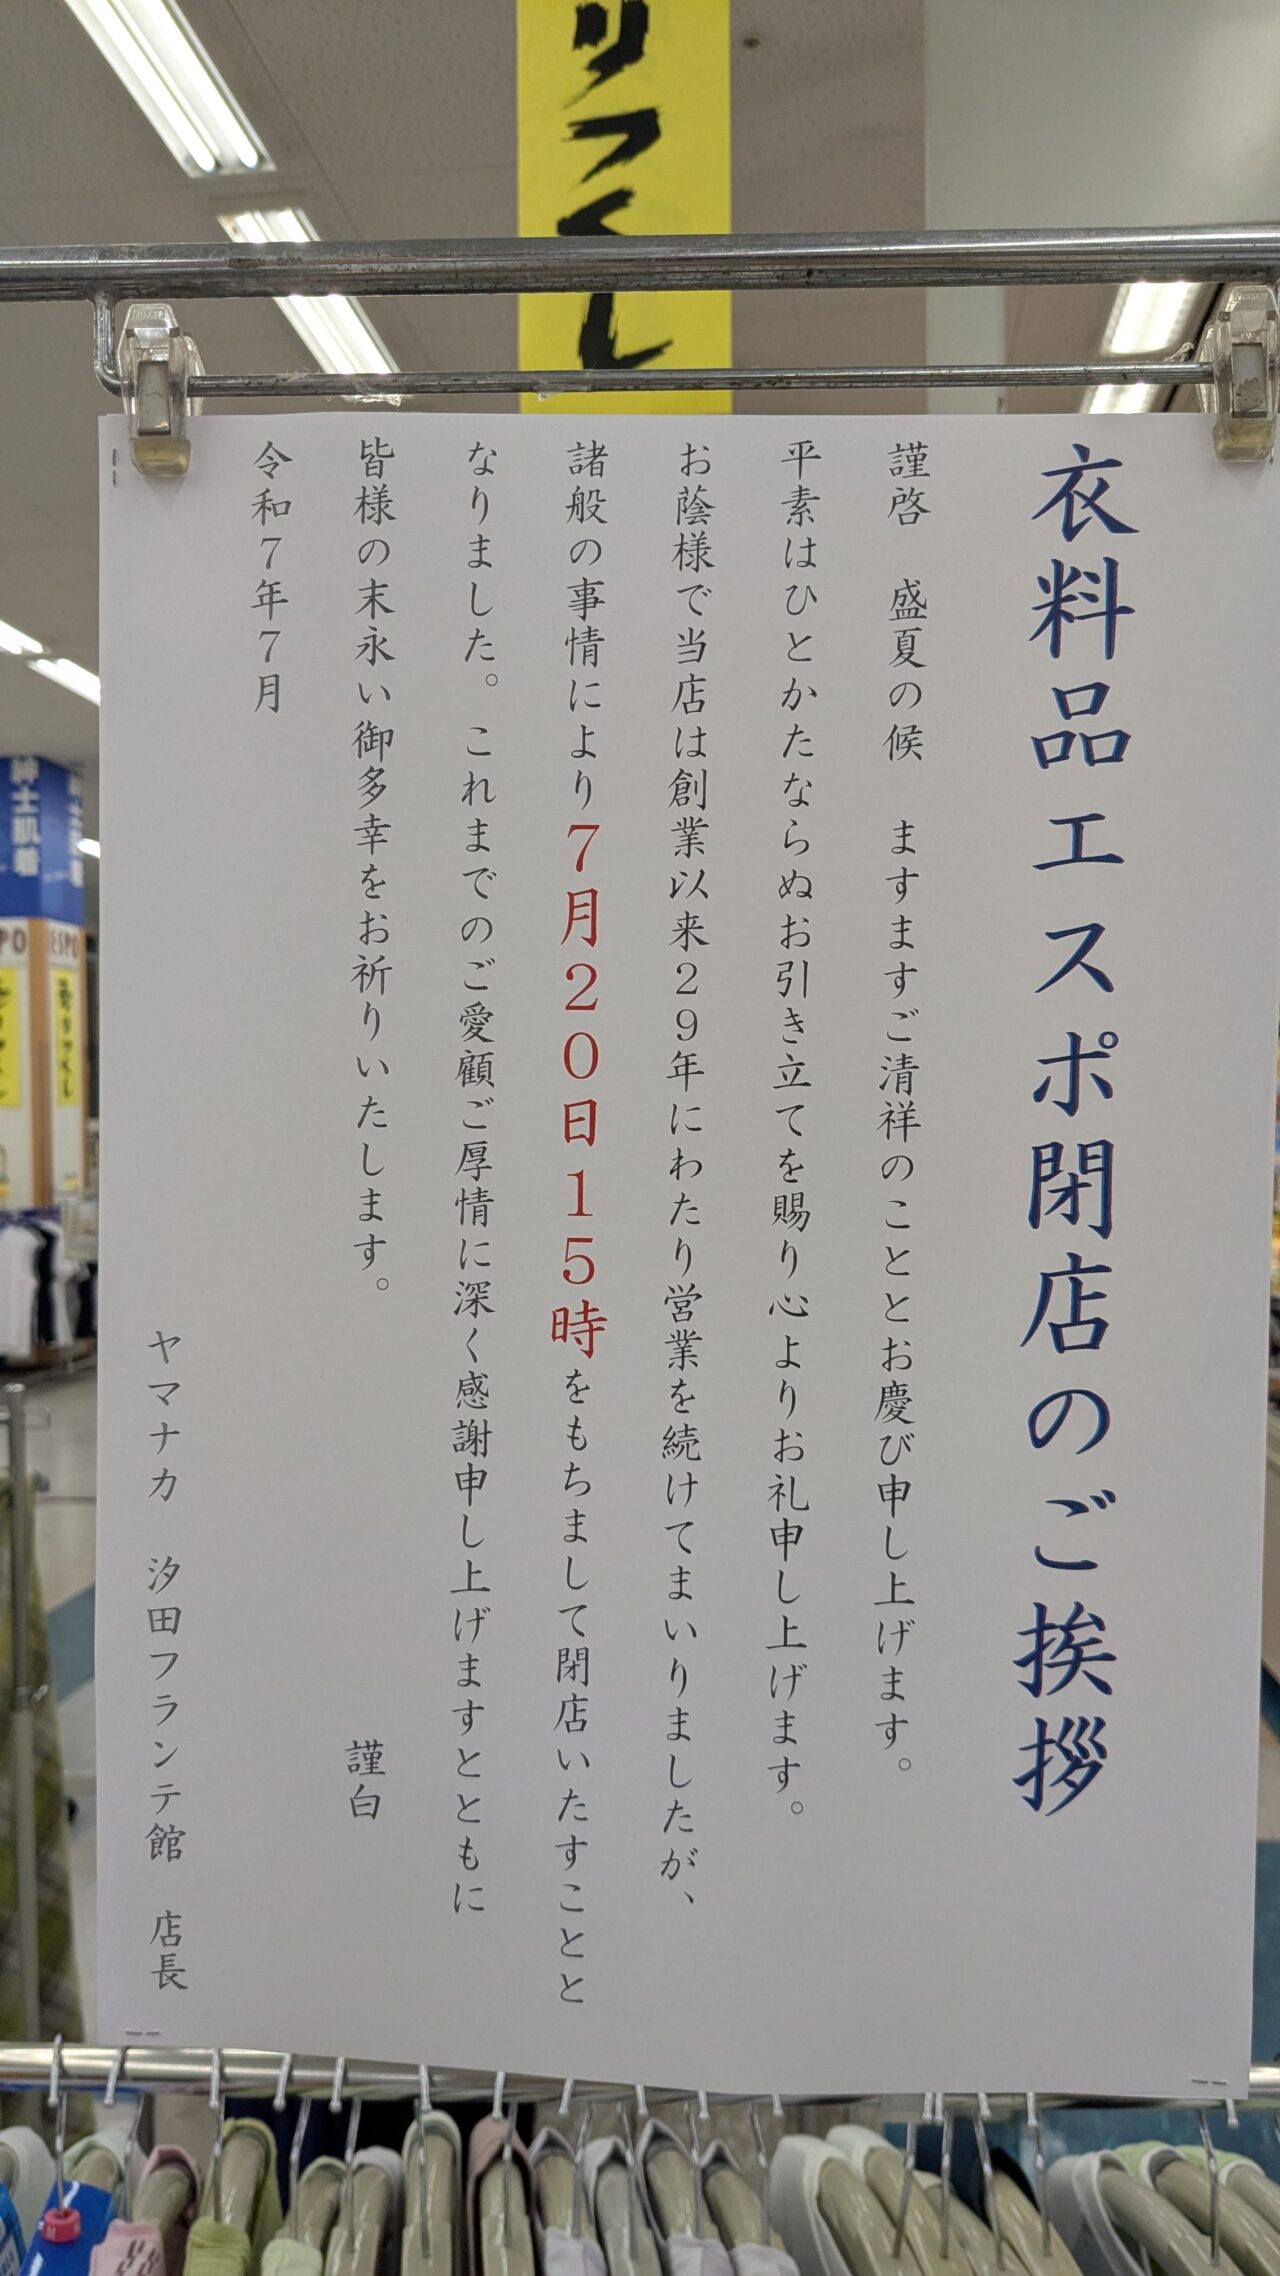 衣料品エスポ閉店のご挨拶
謹啓　盛夏の候　ますますご清祥のこととお慶び申し上げます。
平素はひとかたならぬお引き立てを賜り心よりお礼申し上げます。
お蔭様で当店は創業以来29年にわたり営業を続けてまいりましたが、
諸般の事情により7月20日15時をもちまして閉店いたすことと
なりました。これまでのご愛顧ご厚情に深く感謝申し上げますとともに
皆様の末永い御多幸をお祈りいたします。
謹白
令和7年7月
ヤマナカ　汐田フランテ館　店長
りつくし
紳士肌着
ESPO
売りつくし